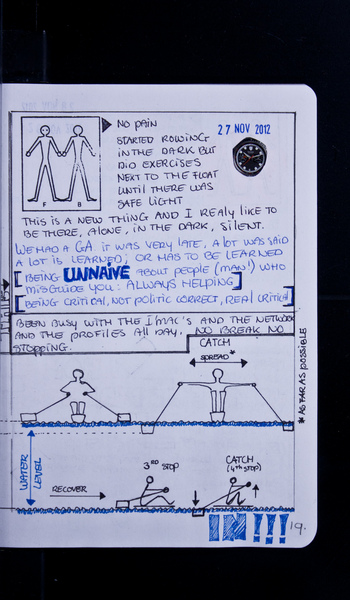 NO PAIN
27 NOV 2012
STARTED ROWING
IN THE DARK BUT
DID EXERCISES
NEXT TO THE FLOAT
UNTIL THERE WAS
SAFE LIGHT
F B
THIS IS A NEW THING AND I REALY LIKE TO
BE THERE, ALONE, IN THE DARK, SILENT.
WE HAD A GA IT WAS VERY LATE, A LOT WAS SAID
A LOT IS LEARNED, OR HAS TO BE LEARNED
[BEING UNNAIVE ABOUT PEOPLE (MAN!) WHO
MISGUIDE YOU: ALWAYS HELPING]
[BEING CRITICAL, NOT POLITIC CORRECT, REAL CRITICAL]
BEEN BUSY WITH THE I/MAC'S AND THE NETWORK
AND THE PROFILES ALL DAY. NO BREAK NO
STOPPING.
CATCH
SPREAD*
*AS FAR AS POSSIBLE
WATER
LEVEL
RECOVER
3RD STOP
CATCH
(4TH STOP)
IN!!!
19.